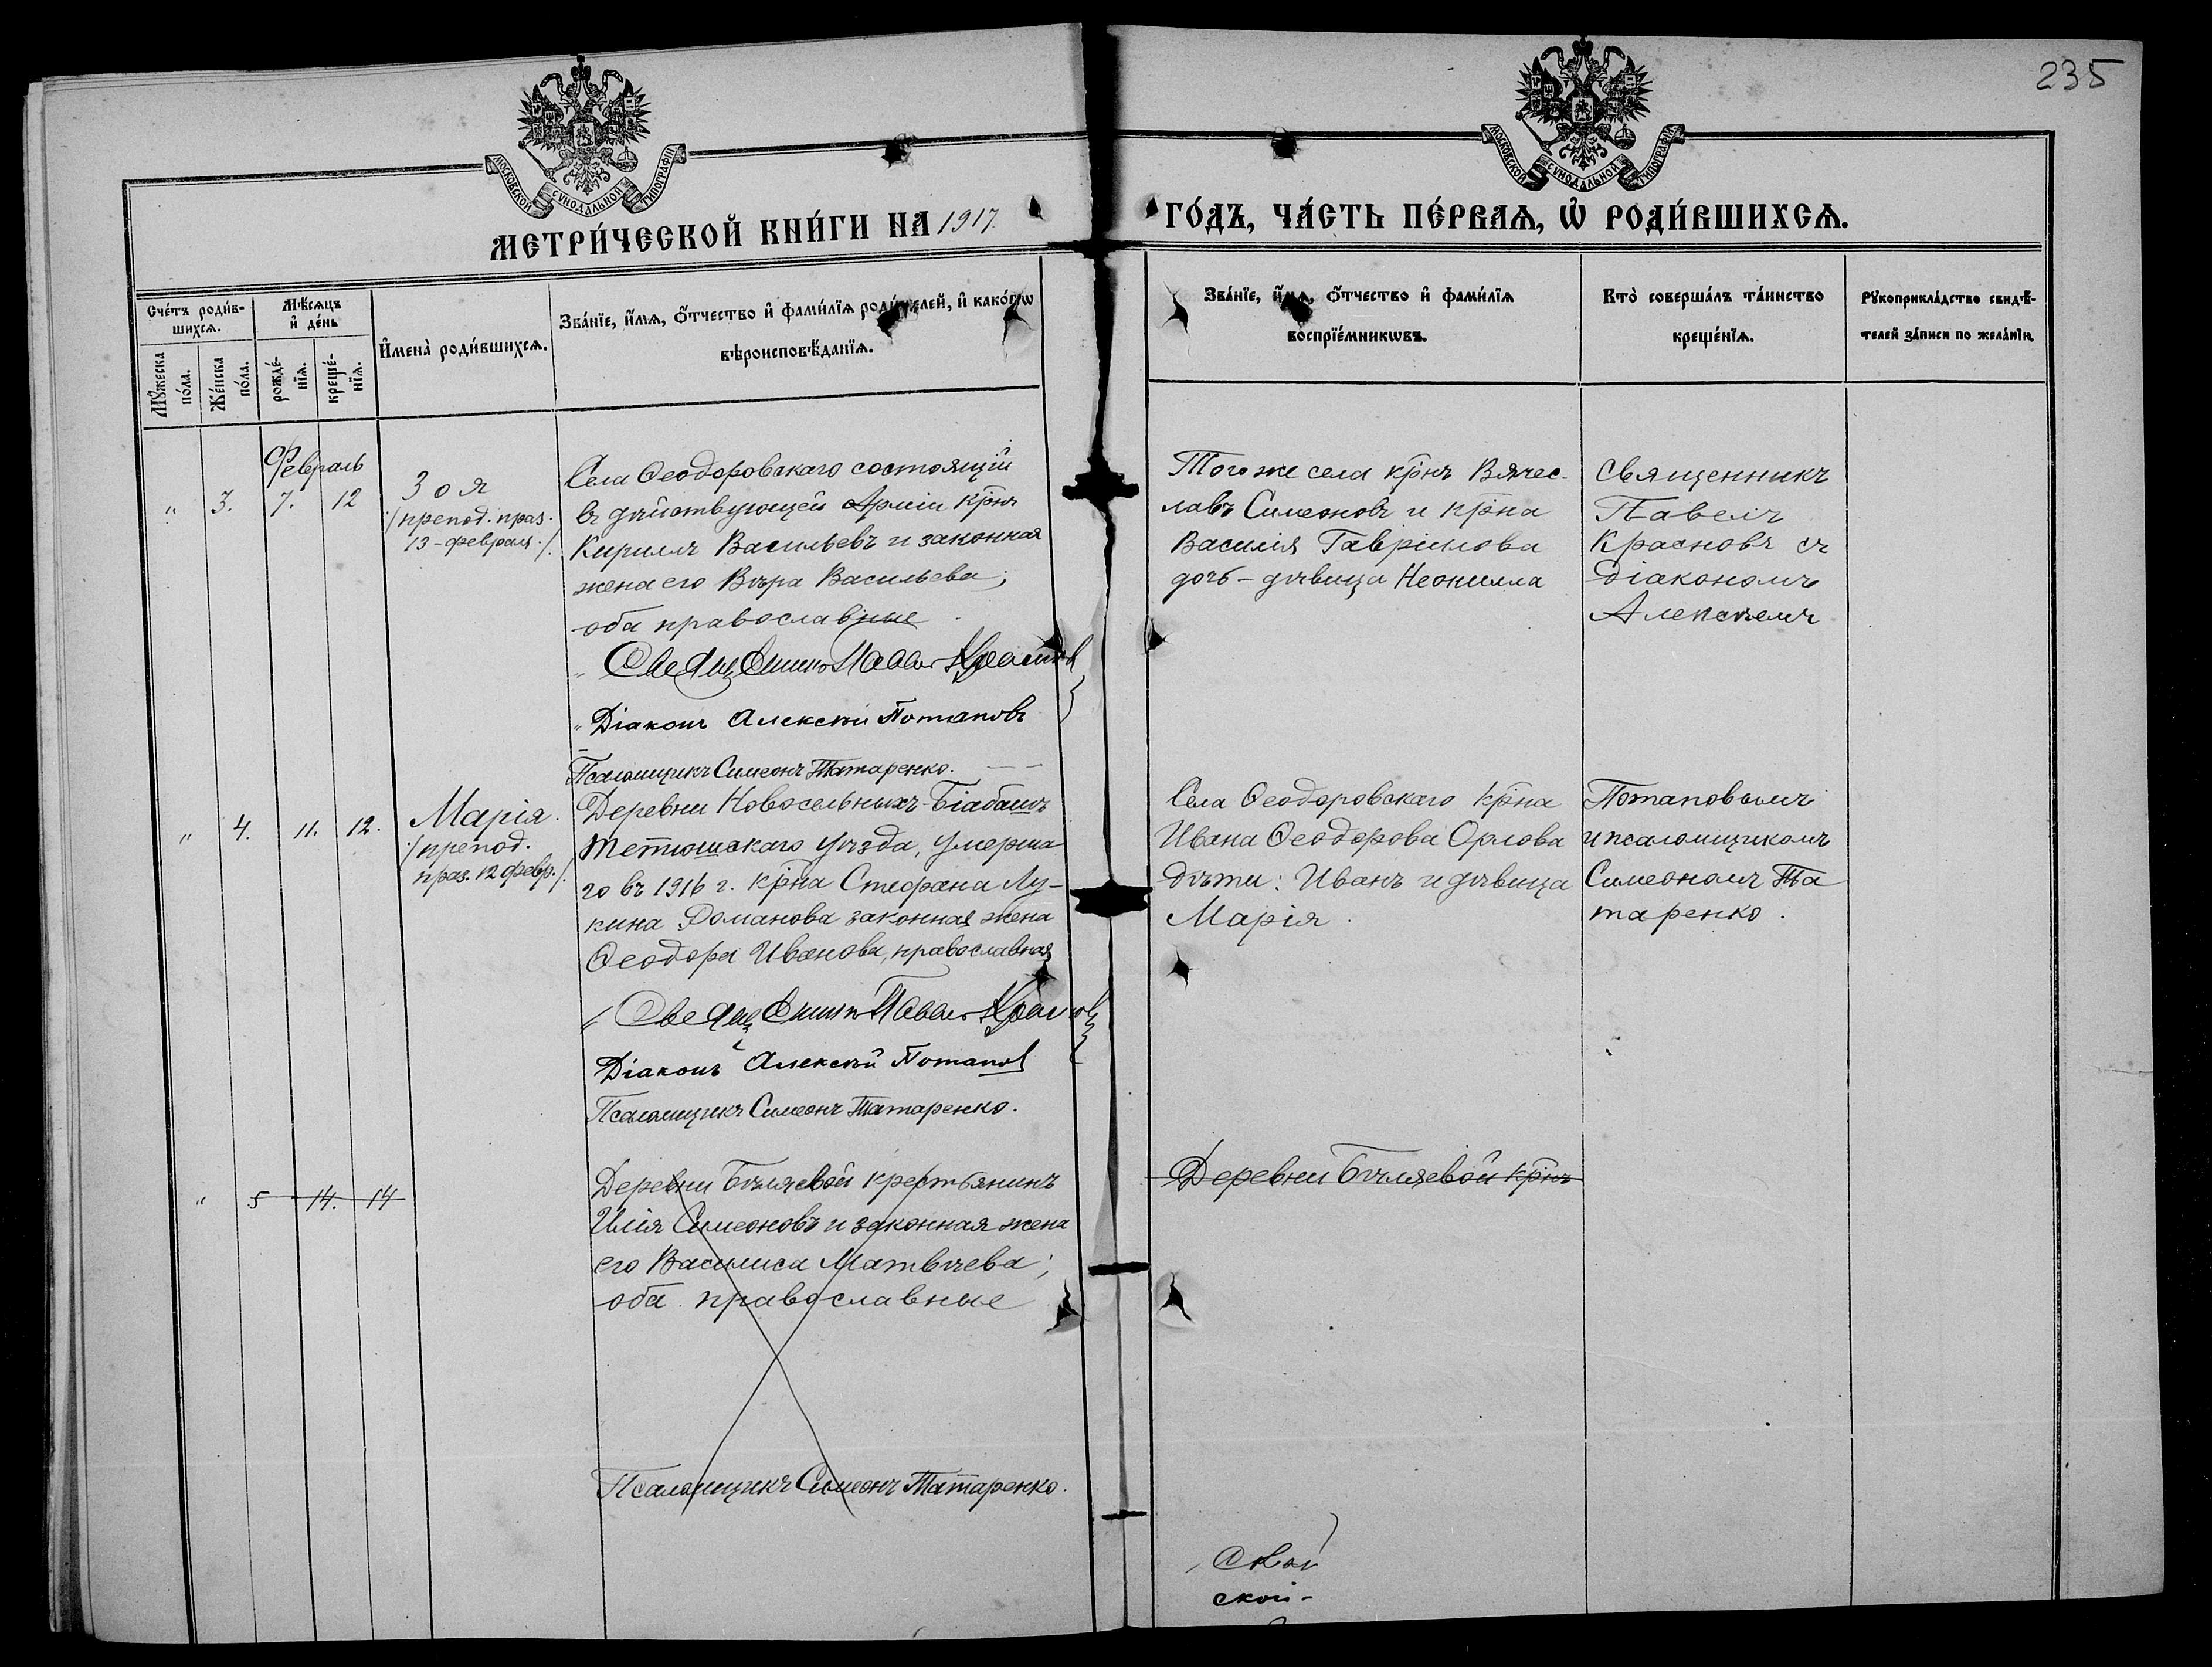 235
МОСКОВСКОЙ СѴНОДАЛЬНОЙ ТИПОГРАФІИ
МОСКОВСКОЙ СѴНОДАЛЬНОЙ ТИПОГРАФІИ
МЕТРИ́ЧЕСКОЙ КНИ́ГИ НА 1917
ГО́ДЪ, ЧА́СТЬ ПЕ́РВАѦ, Ѡ҆ РОДИ́ВШИХСѦ.
Сче́тъ роди́в-
шихсѧ.
Мꙋ́жеска по́ла.
Же́нска по́ла.
Мѣ́сѧцъ
и҆ де́нь
рожде́-
нїѧ.
креще́-
нїѧ.
И҆мена̀ роди́вшихсѧ.
Зва́нїе, и҆́мѧ, ѻ҆́тчество и҆ фами́лїѧ роди́телей, и҆ како́гѡ
вѣроисповѣ́данїѧ.
Зва́нїе, и҆́мѧ, ѻ҆́тчество и҆ фами́лїѧ
воспрїе́мникѡвъ.
Кто̀ соверша́лъ та́инство
креще́нїѧ.
Рꙋкоприкла́дство свидѣ́-
телей за́писи по жела́нїю.
Февраль
" 3. 7. 12
Зоя
/препод. праз.
13-февраля./
Села Ѳеодоровскаго состоящій
въ дѣйствующей Арміи крнъ
Кириллъ Васильевъ и законная
жена его Вѣра Васильева;
оба православные
Священникъ Павелъ Красновъ
Діаконъ Алексѣй Потаповъ
Псаломщикъ Симеонъ Татаренко.
Того же села крнъ Вячес-
лавъ Симеоновъ и крна
Василія Гаврилова
дочь - дѣвица Неонилла
Священникъ
Павелъ
Красновъ съ
діакономъ
Алексѣемъ
" 4. 11. 12.
Марія.
/препод.
праз. 12 февр./.
Деревни Новосельныхъ-Біабашъ
Тетюшскаго уѣзда, умерша-
го въ 1916 г. крна Стефана Лу-
кина Романова законная жена
Ѳеодора Иванова, православная
Священникъ Павелъ Красновъ
Діаконъ Алексѣй Потаповъ
Псаломщикъ Симеонъ Татаренко.
Села Ѳеодоровскаго крна
Ивана Ѳеодорова Орлова
дѣти: Иванъ и дѣвица
Марія.
Потаповымъ
и псаломщикомъ
Симеономъ Та
таренко.
" 5 14. 14
Деревни Бѣляевой крестьянинъ
Илія Симеоновъ и законная жена
его Василиса Матвѣева;
оба православные
Псаломщикъ Симеонъ Татаренко.
Деревни Бѣляевой крнъ
ской-